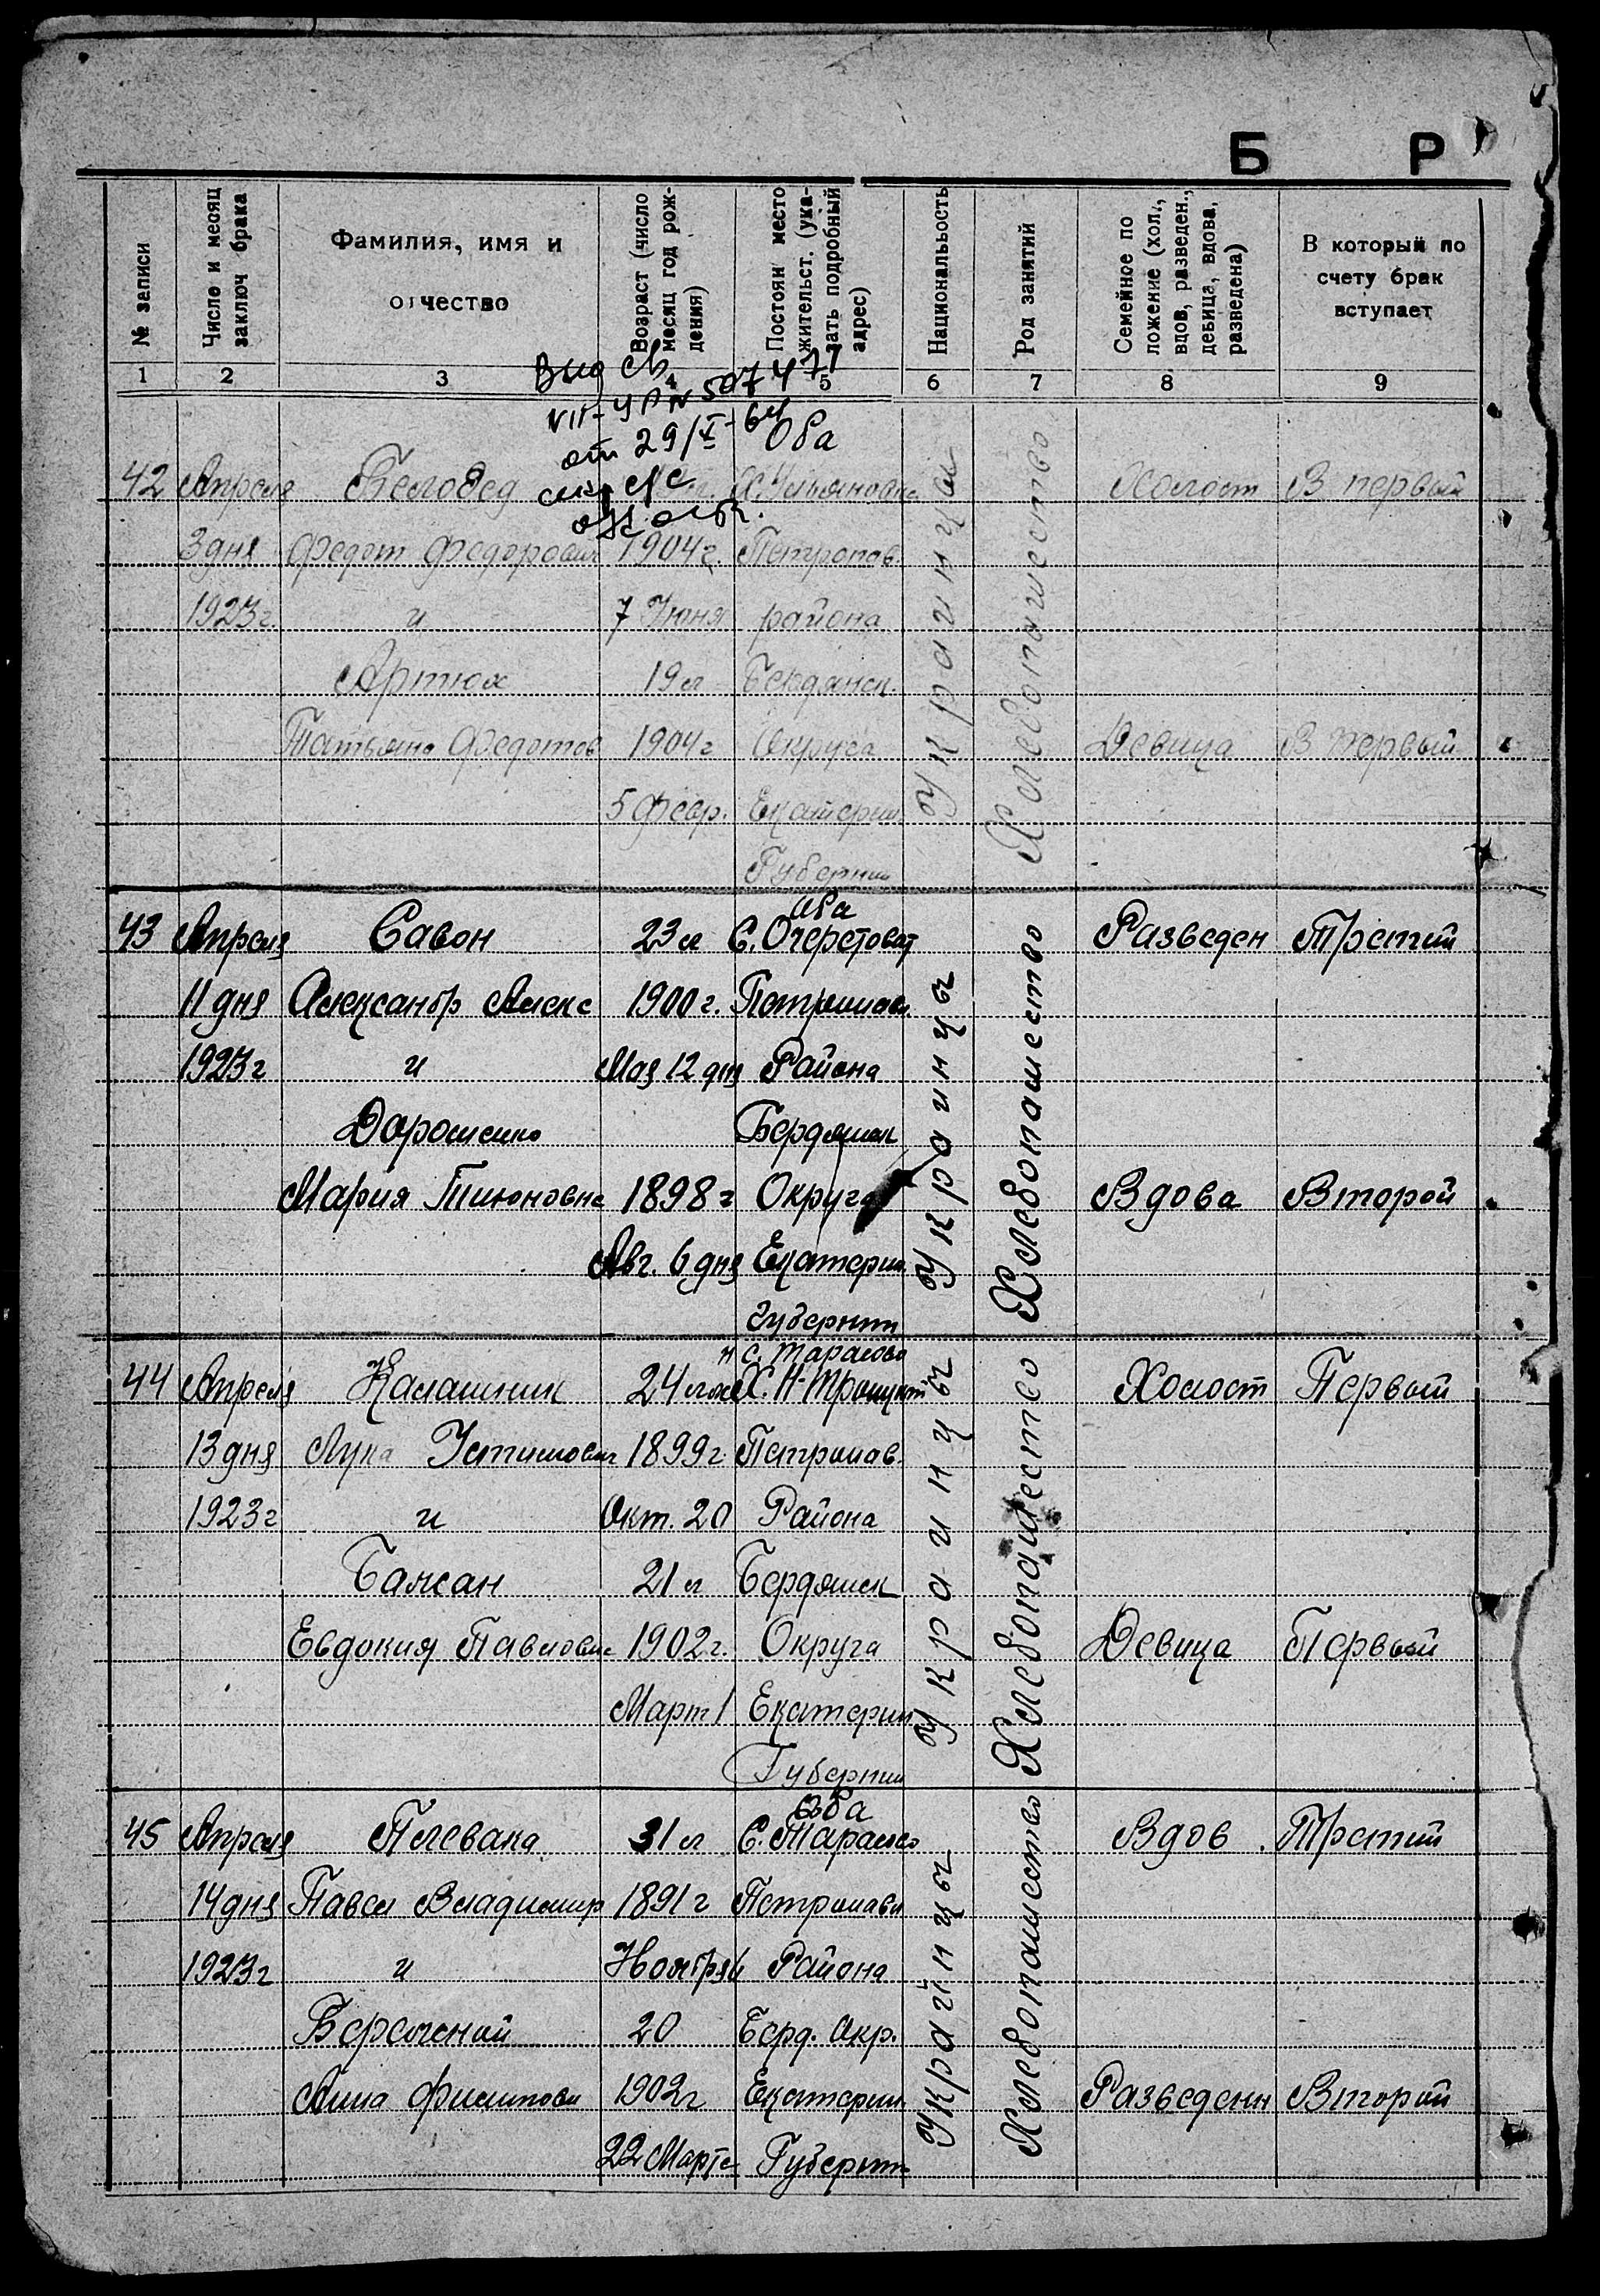 Б Р
№ записи
Число и месяц заключ брака
Фамилия, имя и отчество
Возраст (число месяц год рождения)
Постоян место жительст. (указать подробный адрес)
Национальность
Род занятий
Семейное положение (хол., вдов, разведен., девица, вдова, разведена)
В который по счету брак вступает
1 2 3 4 5 6 7 8 9
Выд св
от 29/X-64
Оба
42 Апреля Белобед Х. Ульяновка Холост В первый
3 дня Федот Федорович 1904 г. Петропав.
1923 г. и 7 Июня района
Артюх 19 л Бердянск.
Татьяна Федотов 1904 г Округа Девица В первый
5 февр. Екатерин
Губернии
Украинцы
Хлебопашество
Оба
43 Апреля Савон 23 л С. Очеретоват Разведен Третий
11 дня Александр Алекс 1900 г. Петропавл.
1923 г и Мая 12 дня Района
Дорошенко Бердянск
Мария Тихоновна 1898 г Округа Вдова Второй
Авг. 6 дня Екатерин.
Губернии
Украинцы
Хлебопашество
и С. Тарасово
44 Апреля Калашник 24 Х. Н-Троицкий Холост Первый
13 дня Лука Устимович 1899 г. Петропав.
1923 г и Окт. 20 Района
Бажан 21 л Бердянск
Евдокия Павловне 1902 г. Округа Девица Первый
Март 1 Екатерин
Губернии
Украинцы
Хлебопашество
Оба
45 Апреля Плевака 31 л С. Тарасово Вдов Третий
14 дня Павел Владимир 1891 г Петропавл
1923 г и Ноября Района
Бережной 20 Берд. Окр.
Анна Филипповн 1902 г Екатерин. Разведенн Второй
22 Марта Губернии
Украйнцы
Хлебопашество